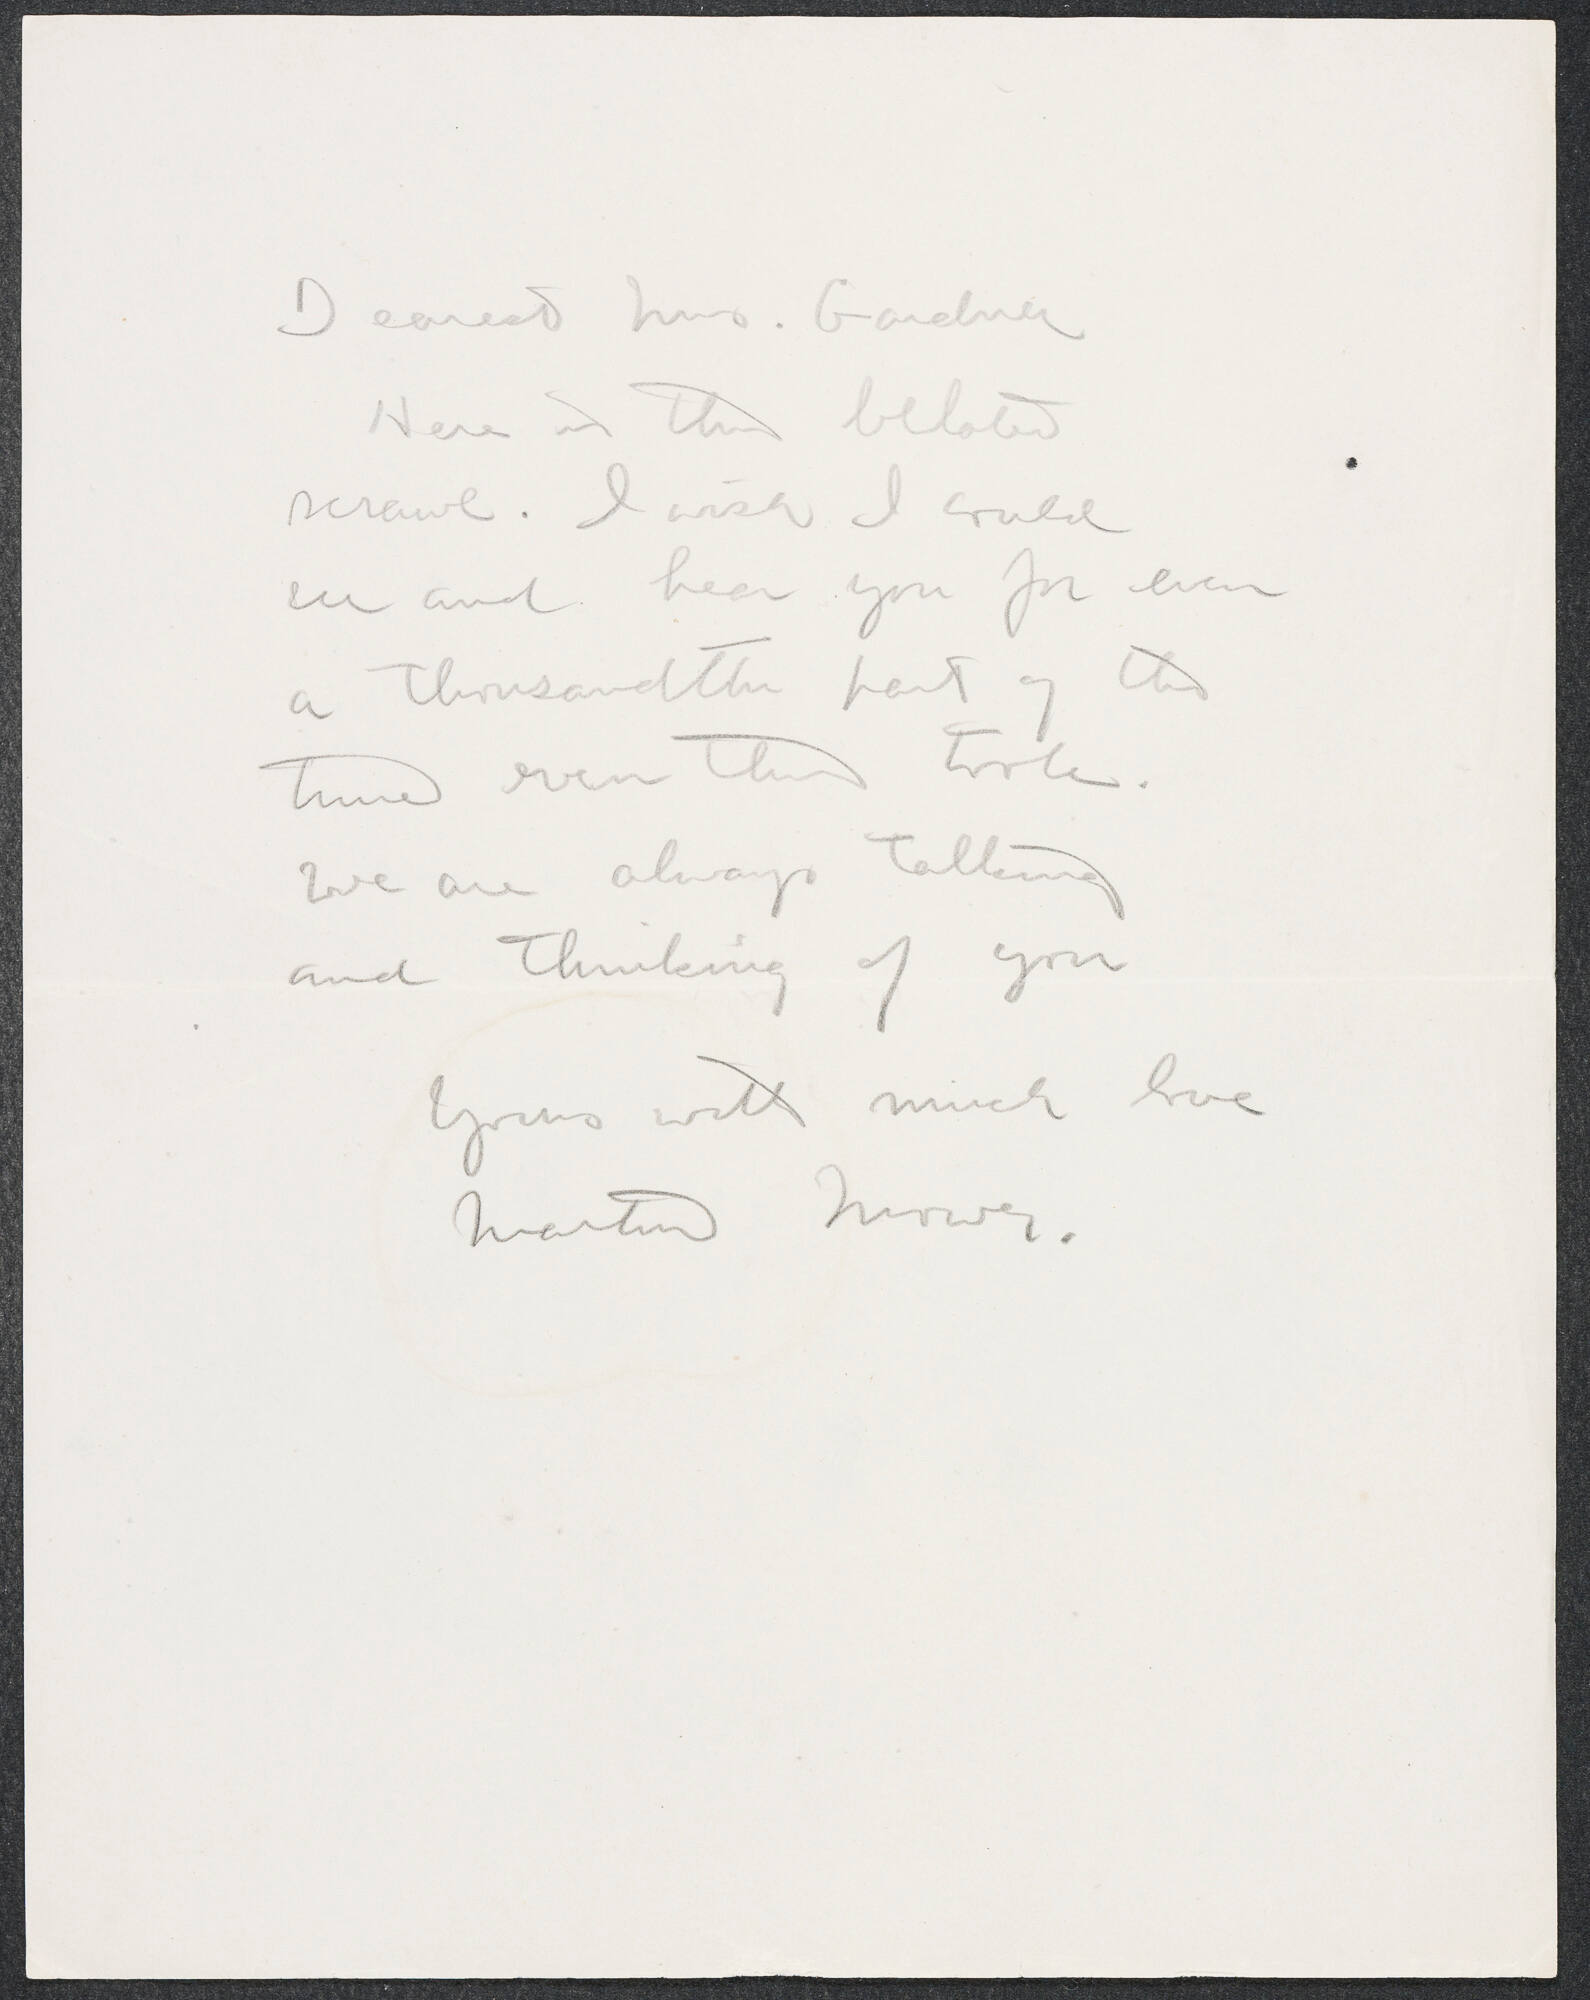 Dearest Mrs. Gardner
Here is this belated
scrawl. I wish I could
see and hear you for even
a thousandth part of the
time even this took.
We are always talking
and thinking of you
Yours with much love
Martin Mower.